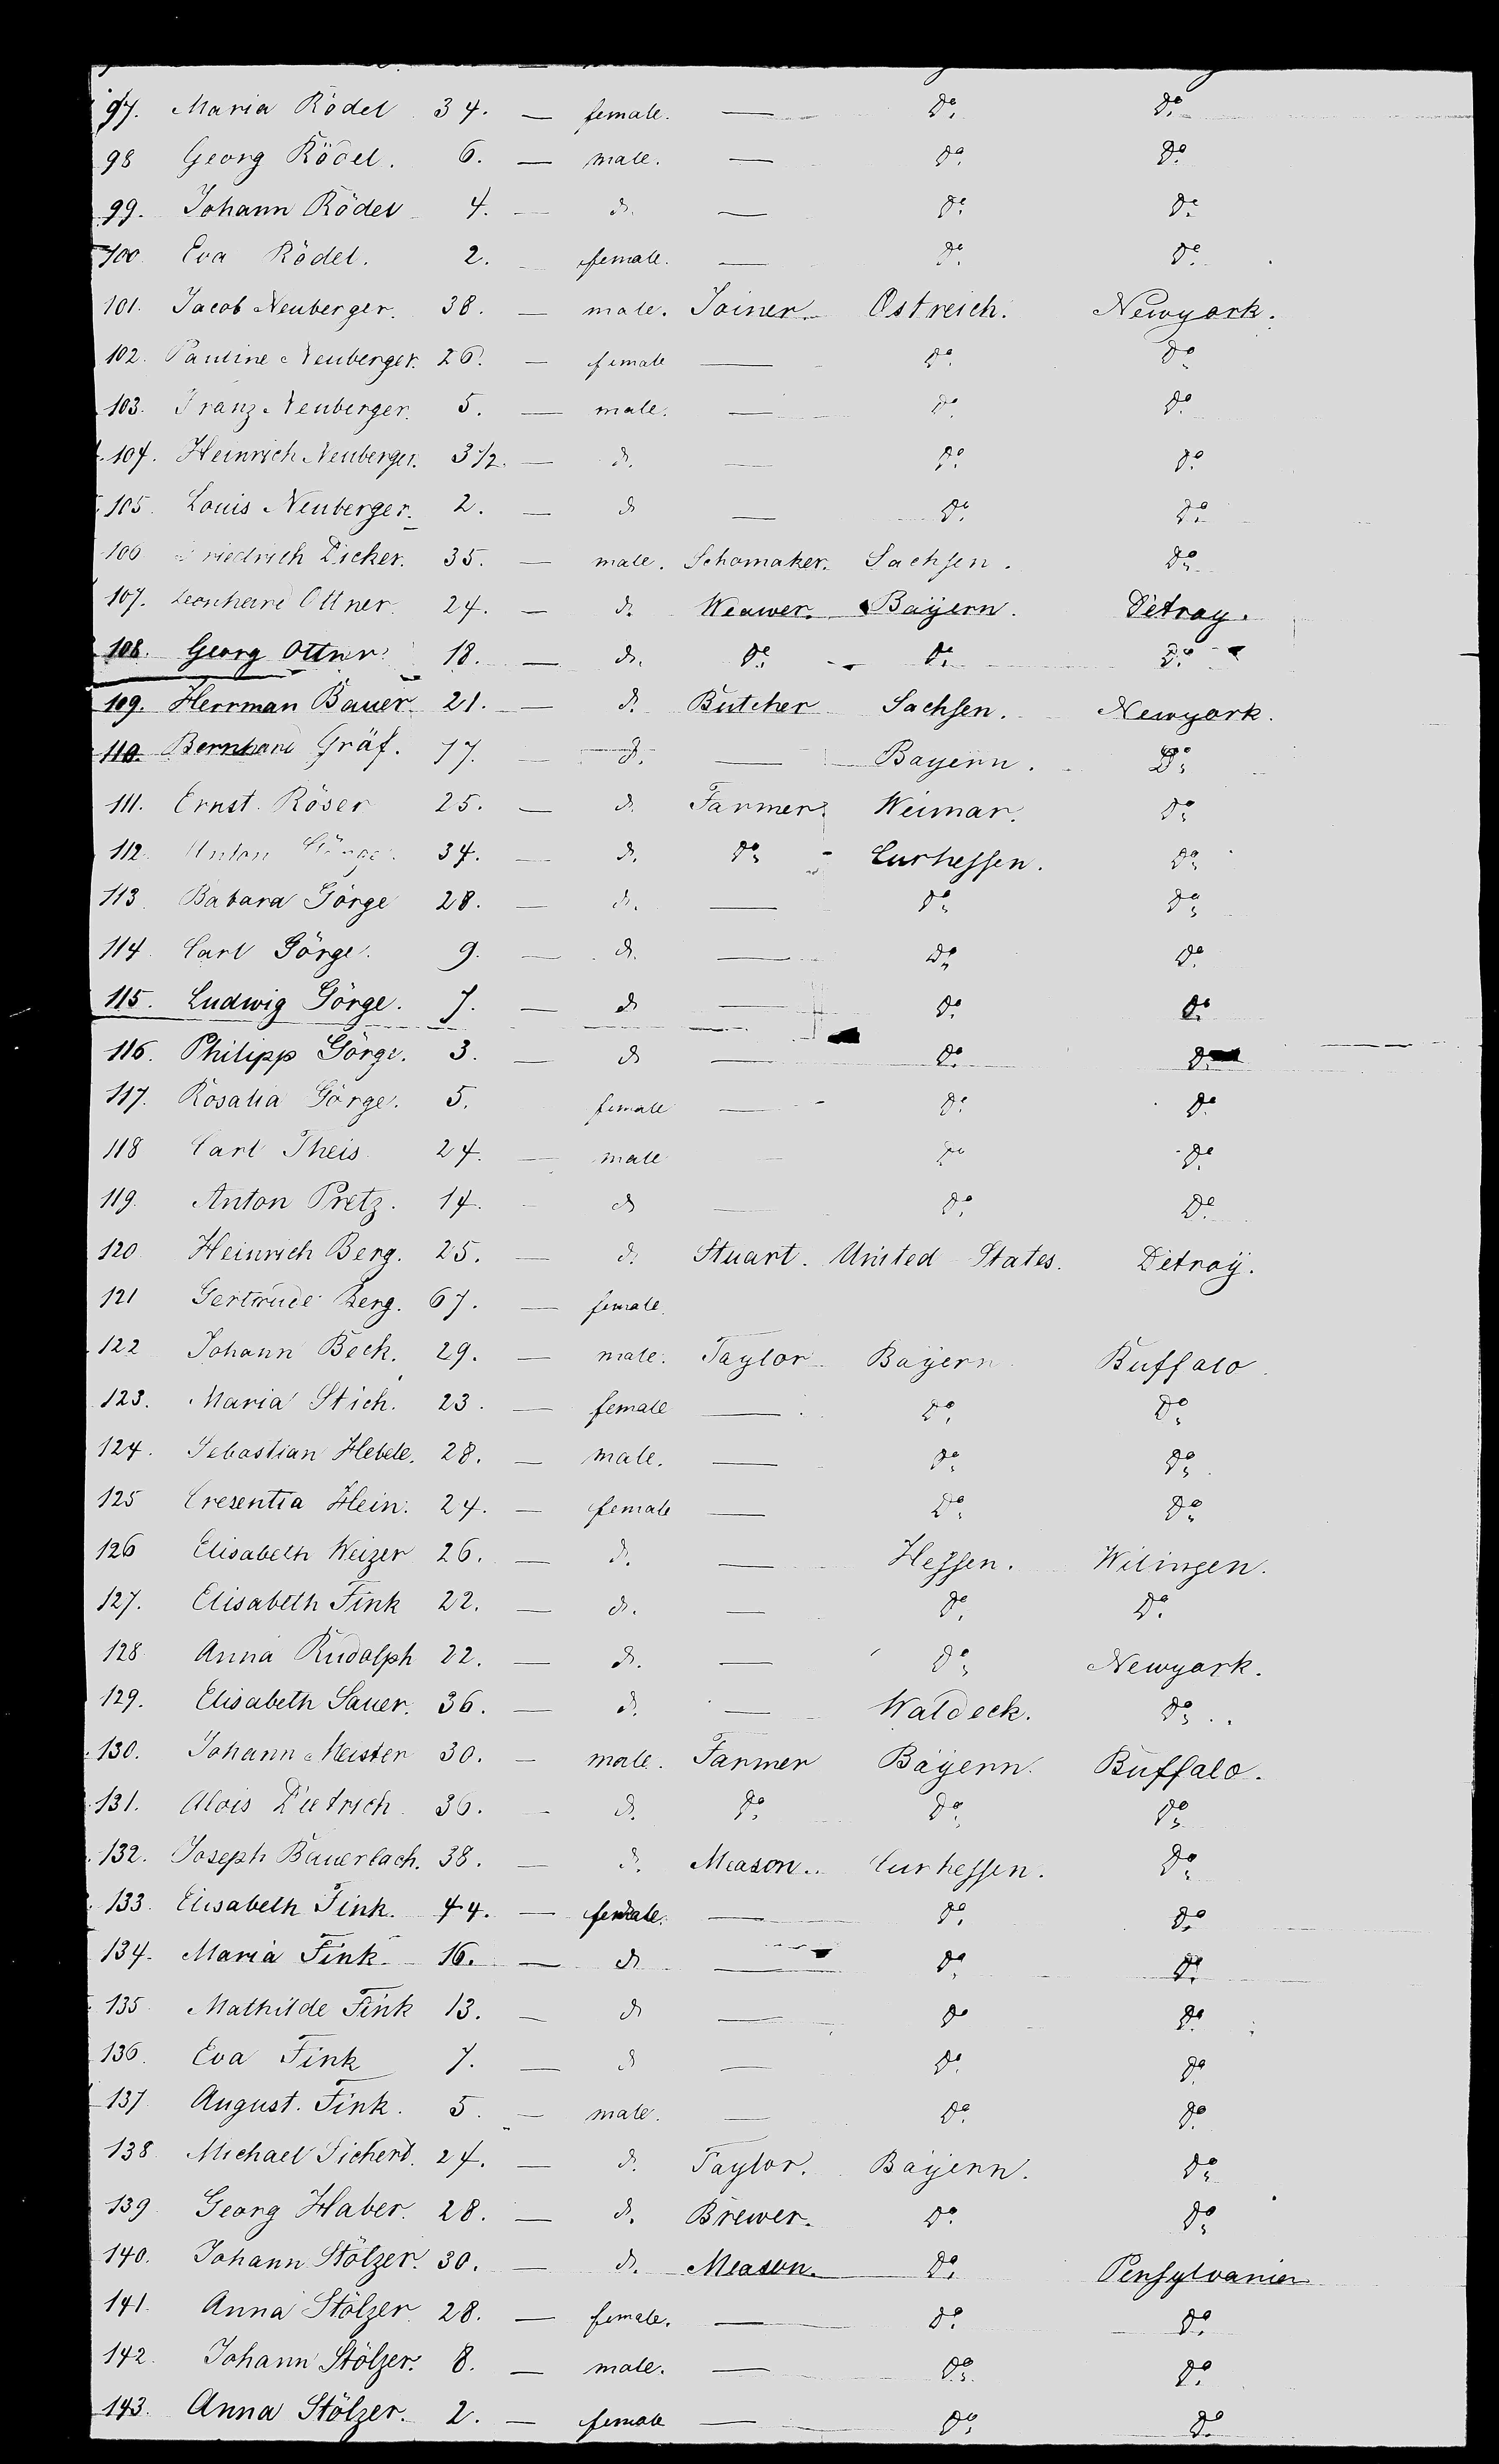 97. Maria Rödel 34. — female. — Do. Do.
98 Georg Rödel. 6. — male. — Do. Do.
99. Johann Rödel 4. — d. — Do. Do.
100 Eva Rödel. 2. female. — Do. Do.
101. Jacob Neuberger. 38. — male. Joiner. Ostreich. Newyork.
102. Pauline Neuberger. 26. — female — Do. Do.
103. Franz Neuberger. 5. — male. — Do. Do.
104. Heinrich Neuberger. 3 1/2. — d. — Do. Do.
105. Louis Neuberger. 2. — d — Do. Do.
106 Friedrich Dicker. 35. — male. Schomaker. Sachsen. Do.
107. Leonhard Ottner. 24. — d. Weawer. Bayern. Detroy.
108. Georg Ottner 18. — d. Do. Do. Do.
109. Herrman Bauer. 21. — d. Butcher Sachsen. Newyork.
110. Bernhard Gräf. 17. — d. — Bayern. Do.
111. Ernst Röser 25. — d. Farmer. Weimar. Do.
112. Anton Görge. 34. — d. Do. Curhessen. Do.
113. Babara Görge 28. — d. — Do. Do.
114. Carl Görge. 9. — d. — Do. Do.
115. Ludwig Görge. 7. — d — Do. Do.
116. Philipp Görge. 3. — d — Do. Do.
117. Rosalia Görge. 5. female — Do. Do.
118 Carl Theis 24. — male — Do. Do.
119. Anton Pretz. 14. — d — Do. Do.
120 Heinrich Berg. 25. — d. Stuart. United States. Detroy.
121 Gertrude Berg. 67. — female.
122 Johann Beck. 29. — male. Taylor Bayern Buffalo.
123. Maria Stich. 23. — female — Do. Do.
124. Sebastian Hebele. 28. — male. — Do. Do.
125 Cresentia Hein. 24. — female — Do. Do.
126 Elisabeth Weizer 26. — d. — Hessen. Wilingen.
127. Elisabeth Fink 22. — d. — Do. Do.
128 Anna Rudolph 22. — d. — Do. Newyork.
129. Elisabeth Sauer. 36. — d. — Waldeck. Do.
130. Johann Meister 30. — male. Farmer Bayern. Buffalo.
131. Alois Dietrich 36. — d. Do. Do. Do.
132. Joseph Bauerlach. 38. — d. Meason. Curhessen. Do.
133. Elisabeth Fink. 44. — female. — Do. Do.
134. Maria Fink. 16. — d — Do. Do.
135. Mathilde Fink 13. — d — Do Do.
136. Eva Fink 7. — d — Do. Do.
137 August. Fink. 5. — male. — Do. Do.
138 Michael Sichert. 24. — d. Taylor. Bayern. Do.
139 Georg Haber. 28. — d. Brewer. Do. Do.
140. Johann Stölzer. 30. — d. Meason. Do. Pensylvanien
141. Anna Stölzer 28. — female. — Do. Do.
142. Johann Stölzer. 8. — male. — Do. Do.
143. Anna Stölzer. 2. — female — Do. Do.